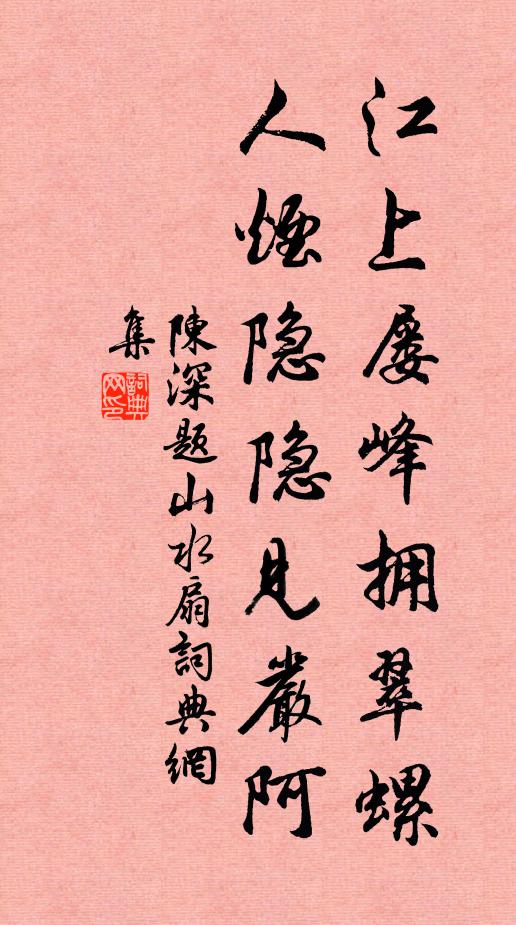 江上屡峰拥翠螺
人烟隐隐见嚴阿
陳深题山水扇詞典網
集
詞典網印